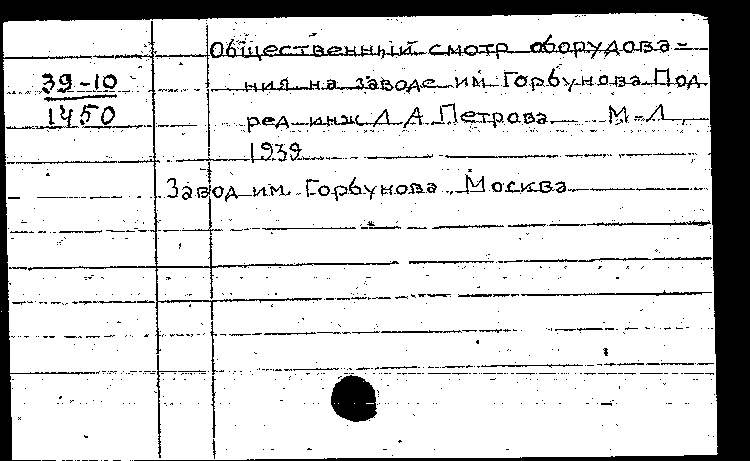 39-10
1450
Общественный смотр оборудова-
ния на заводе им. Горбунова. Под
ред инж Л А Петрова М-Л,
1939
Завод им. Горбунова, Москва